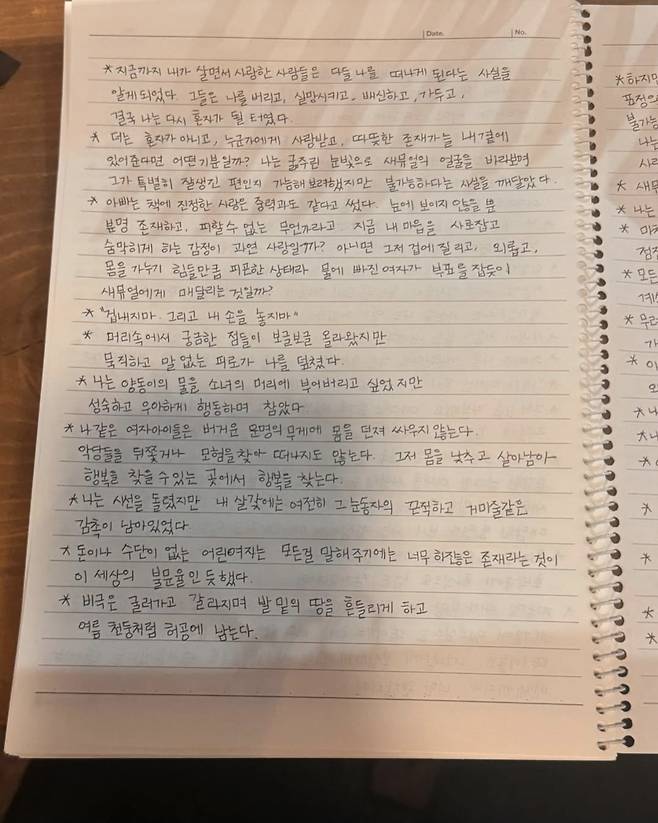 Date.
No.
*지금까지 내가 살면서 사랑한 사람들은 다들 나를 떠나게 된다는 사실을
알게되었다. 그들은 나를 버리고, 실망시키고, 배신하고, 가두고,
결국 나는 다시 혼자가 될 터였다.
* 더는 혼자가 아니고, 누군가에게 사랑받고, 따뜻한 존재가 늘 내곁에
있어준다면 어떤기분일까? 나는 굶주린 눈빛으로 새뮤얼의 얼굴을 바라보며
그가 특별히 잘생긴 편인지 가늠해보려했지만 불가능하다는 사실을 깨달았다.
* 아빠는 책에 진정한 사랑은 중력과도 같다고 썼다. 눈에 보이지 않을 뿐
분명 존재하고, 피할수 없는 무언가라고. 지금 내 마음을 사로잡고
숨막히게 하는 감정이 과연 사랑일까? 아니면 그저 겁에 질리고, 외롭고,
몸을 가누기 힘들만큼 피곤한 상태라 물에 빠진 여자가 부표를 잡듯이
새뮤얼에게 매달리는 것일까?
* "겁내지마. 그리고 내 손을 놓지마"
* 머리속에서 궁금한 점들이 보글보글 올라왔지만
묵직하고 말 없는 피로가 나를 덮쳤다.
* 나는 양동이의 물을 소녀의 머리에 부어버리고 싶었지만
성숙하고 우아하게 행동하며 참았다
* 나같은 여자아이들은 버거운 운명의 무게에 몸을 던져 싸우지 않는다.
악당들을 뒤쫓거나 모험을 찾아 떠나지도 않는다. 그저 몸을 낮추고 살아남아
행복을 찾을수 있는 곳에서 행복을 찾는다.
*나는 시선을 돌렸지만 내 살갗에는 여전히 그 눈동자의 끈적하고 거미줄같은
감촉이 남아있었다
* 돈이나 수단이 없는 어린여자는 모든걸 말해주기에는 너무 하찮은 존재라는 것이
이 세상의 불문율인 듯했다.
* 비극은 굴러가고 갈라지며 발 밑의 땅을 흔들리게 하고
여름 천둥처럼 허공에 남는다.
*하지만
표정의
불가능
나는
사라
* 새뮤
*나는
* 마치
점점
*모든
계속
* 우리
가
* 이
외
*나
*나
*
*
*
*
*